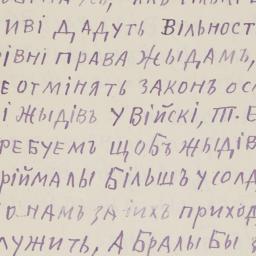 ИВІ ДАДУТЬ ВІЛЬНОСТ
РІВНІ ПРАВА ЖЫДАМЪ,
Е ОТМІНЯТЬ ЗАКОНЪ ОС
І ЖЫДІВЪ У ВІЙСКІ, Т. Е
РЕБУЕМЪ ЩОБЪ ЖЫДІВ
РІЙМАЛЫ БІЛЬШЪ У СОЛД
О НАМЪ ЗА ІИХЪ ПРИХОД
ЛУЖИТЬ, А БРАЛЫ БЫ З